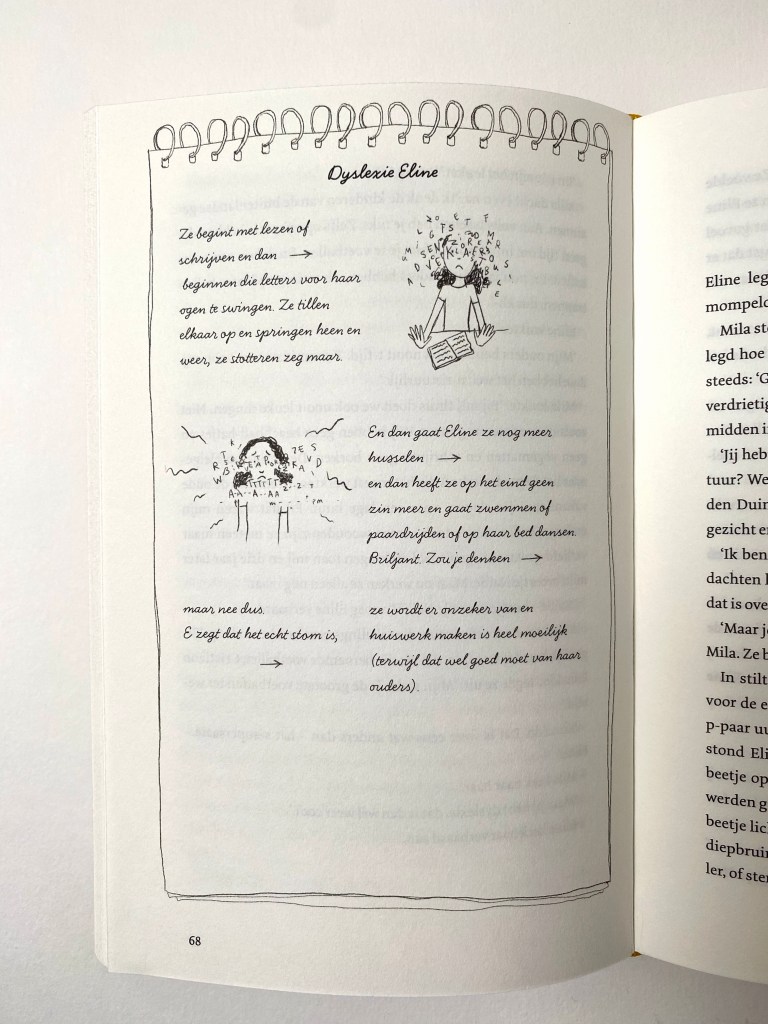 Dyslexie Eline
Ze begint met lezen of
schrijven en dan →
beginnen die letters voor haar
ogen te swingen. Ze tillen
elkaar op en springen heen en
weer, ze stotteren zeg maar.
En dan gaat Eline ze nog meer
husselen →
en dan heeft ze op het eind geen
zin meer en gaat zwemmen of
paardrijden of op haar bed dansen.
Briljant. Zou je denken →
maar nee dus.
E zegt dat het echt stom is,
→
ze wordt er onzeker van en
huiswerk maken is heel moeilijk
(terwijl dat wel goed moet van haar
ouders).
68
Eline leg
mompeld
Mila ste
legd hoe
steeds: ‘G
verdrietig
midden i
‘Jij heb
tuur? We
den Duin
gezicht e
‘Ik ben
dachten
dat is ove
‘Maar j
Mila. Ze b
In stilt
voor de e
p-paar uu
stond Eli
beetje op
werden g
beetje lic
diepbruin
ler, of ster